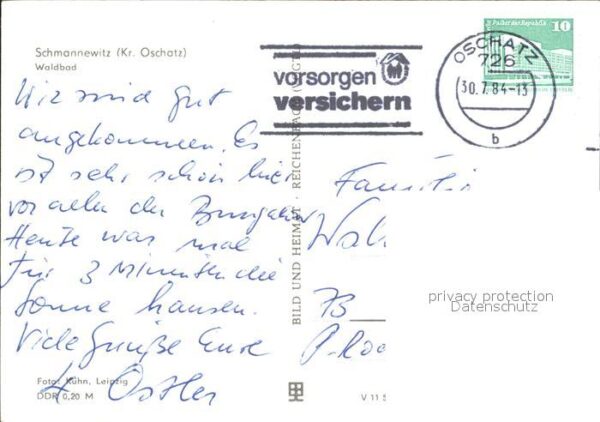 Schmannewitz (Kr. Oschatz)
Waldbad
Wir sind gut
angekommen. Es
ist sehr schön hier
vor allem der Bungalow
Heute war mal
für 3 Minuten die
Sonne
Viele Grüße Eure
Foto: Kühn, Leipzig
DDR 0,20 M
BILD UND HEIMAT · REICHENBACH (VOGTL)
V 11 5
vorsorgen
versichern
OSCHATZ
726
30.7.84-13
b
Palast der Republik
10
Familie
privacy protection
Datenschutz